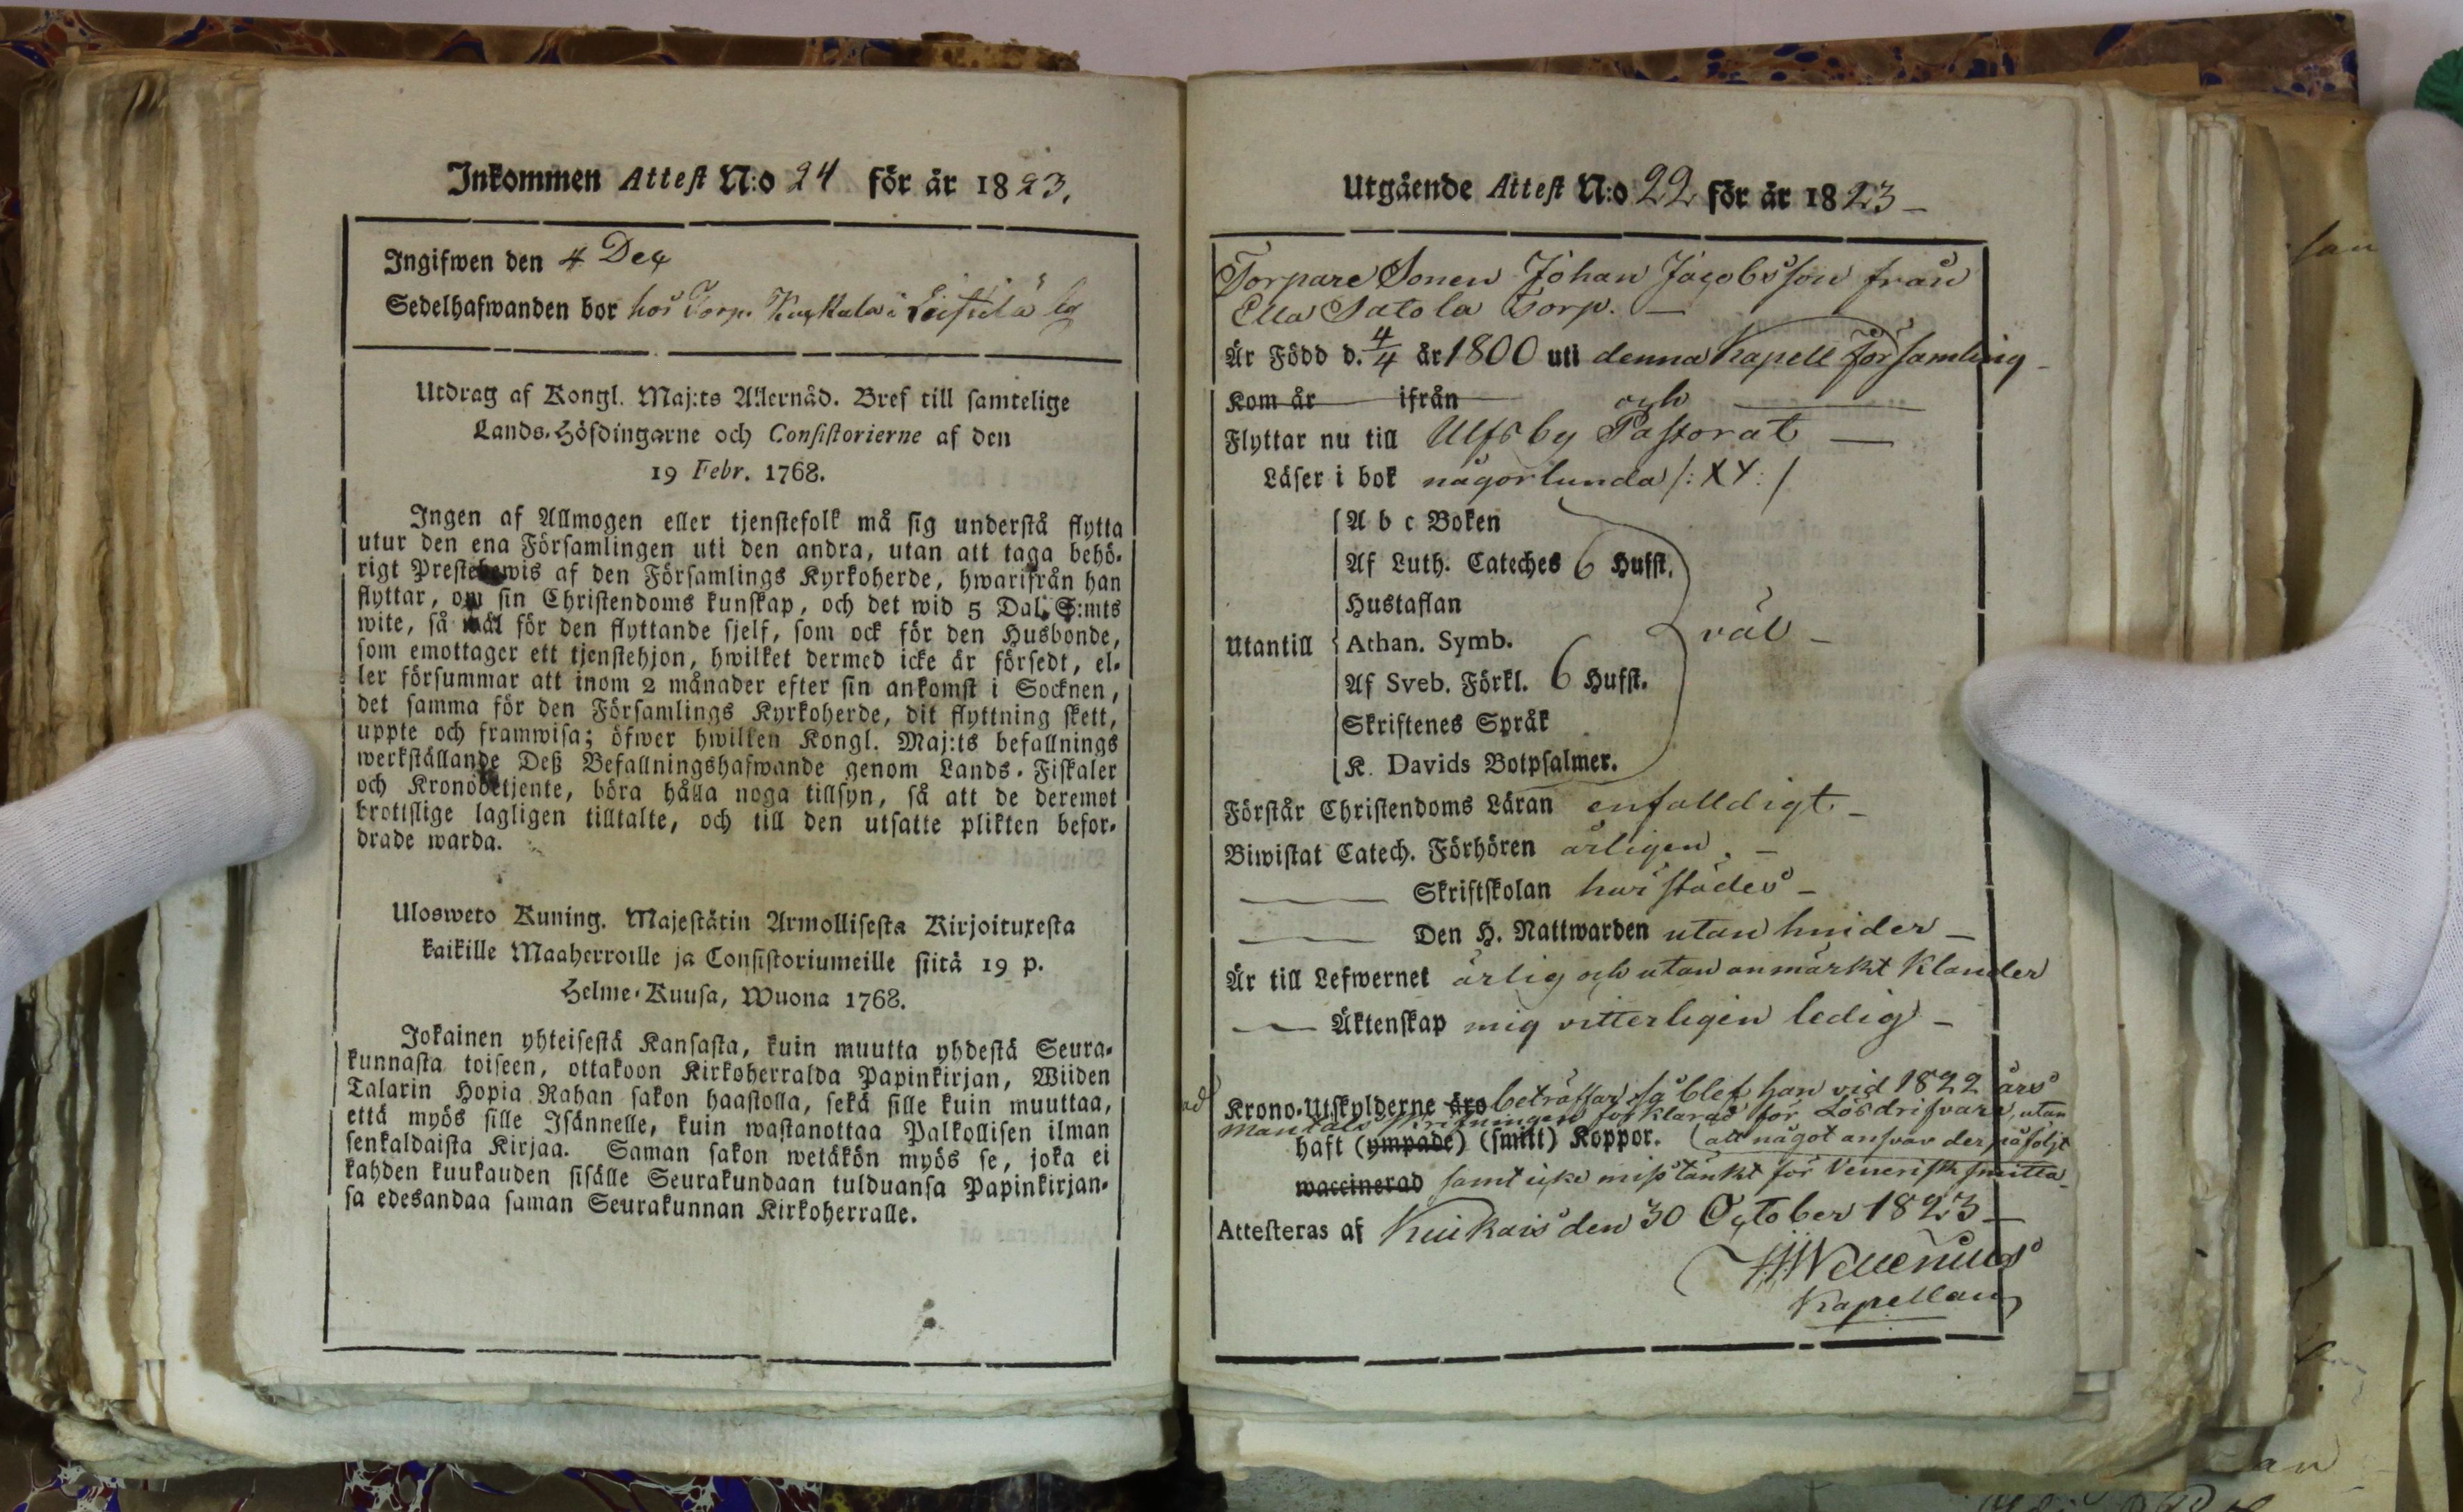 Inkommen Attest N:o 24 för år 1823.
Ingifwen den 4 Dec
Sedelhafwanden bor hos Torp. i
Utdrag af Kongl. Maj:ts Allernåd. Bref till samtelige
Lands-Höfdingarne och Consistorierne af den
19 Febr. 1768.
Ingen af Allmogen eller tjenstefolk må sig understå flytta
utur den ena Församlingen uti den andra, utan att taga behö-
rigt Prestebewis af den Församlings Kyrkoherde, hwarifrån han
flyttar, om sin Christendoms kunskap, och det wid 5 Dal. S:mts
wite, så wäl för den flyttande sjelf, som ock för den Husbonde,
som emottager ett tjenstehjon, hwilket dermed icke är försedt, el-
ler försummar att inom 2 månader efter sin ankomst i Socknen,
det samma för den Församlings Kyrkoherde, dit flyttning skett,
uppte och framwisa; öfwer hwilken Kongl. Maj:ts befallnings
werkställande Deß Befallningshafwande genom Lands-Fiskaler
och Kronobetjente, böra hålla noga tillsyn, så att de deremot
brottslige lagligen tilltalte, och till den utsatte plikten befor-
drade warda.
Ulosweto Kuning. Majestätin Armollisesta Kirjoituxesta
kaikille Maaherroille ja Consistoriumeille siitä 19 p.
Helme-Kuusa, Wuona 1768.
Jokainen yhteisestä Kansasta, kuin muutta yhdestä Seura-
kunnasta toiseen, ottakoon Kirkoherralda Papinkirjan, Wiiden
Talarin Hopia Rahan sakon haastolla, sekä sille kuin muuttaa,
että myös sille Isännelle, kuin wastanottaa Palkollisen ilman
senkaldaista Kirjaa. Saman sakon wetäkön myös se, joka ei
kahden kuukauden sisälle Seurakundaan tulduansa Papinkirjan-
sa edesandaa saman Seurakunnan Kirkoherralle.
Utgående Attest N:o 22 för år 1823
Torpare Sonen Johan Jacobsson från
Ella Satola Torp.
Är Född d. 4/4 år 1800 uti denna Kapell Församling
Kom år ifrån och
Flyttar nu till Ulfsby Pastorat
Läser i bok någorlunda /: XX :/
A b c Boken
Af Luth. Cateches 6 Hufst.
Hustaflan
Utantill Athan. Symb. väl
Af Sveb. Förkl. 6 Hufst.
Skriftenes Språk
K. Davids Botpsalmer.
Förstår Christendoms Läran enfalldigt
Biwistat Catech. Förhören årligen.
Skriftskolan
Den H. Nattwarden utan hinder
Är till Lefwernet ärlig och utan anmärkt klander
Äktenskap mig vitterligen ledig
Krono-Utskylderne äro beträffar, så blef han vid 1822 års
mantals skrifningen förklarad för Lösdrifvare, utan
haft (ympade) (smitt) Koppor. (att något ansvar derpå följt
waccinerad samt icke misstänkt för Venerisk smitta
Attesteras af Kiukais den 30 October 1823
Kapellan